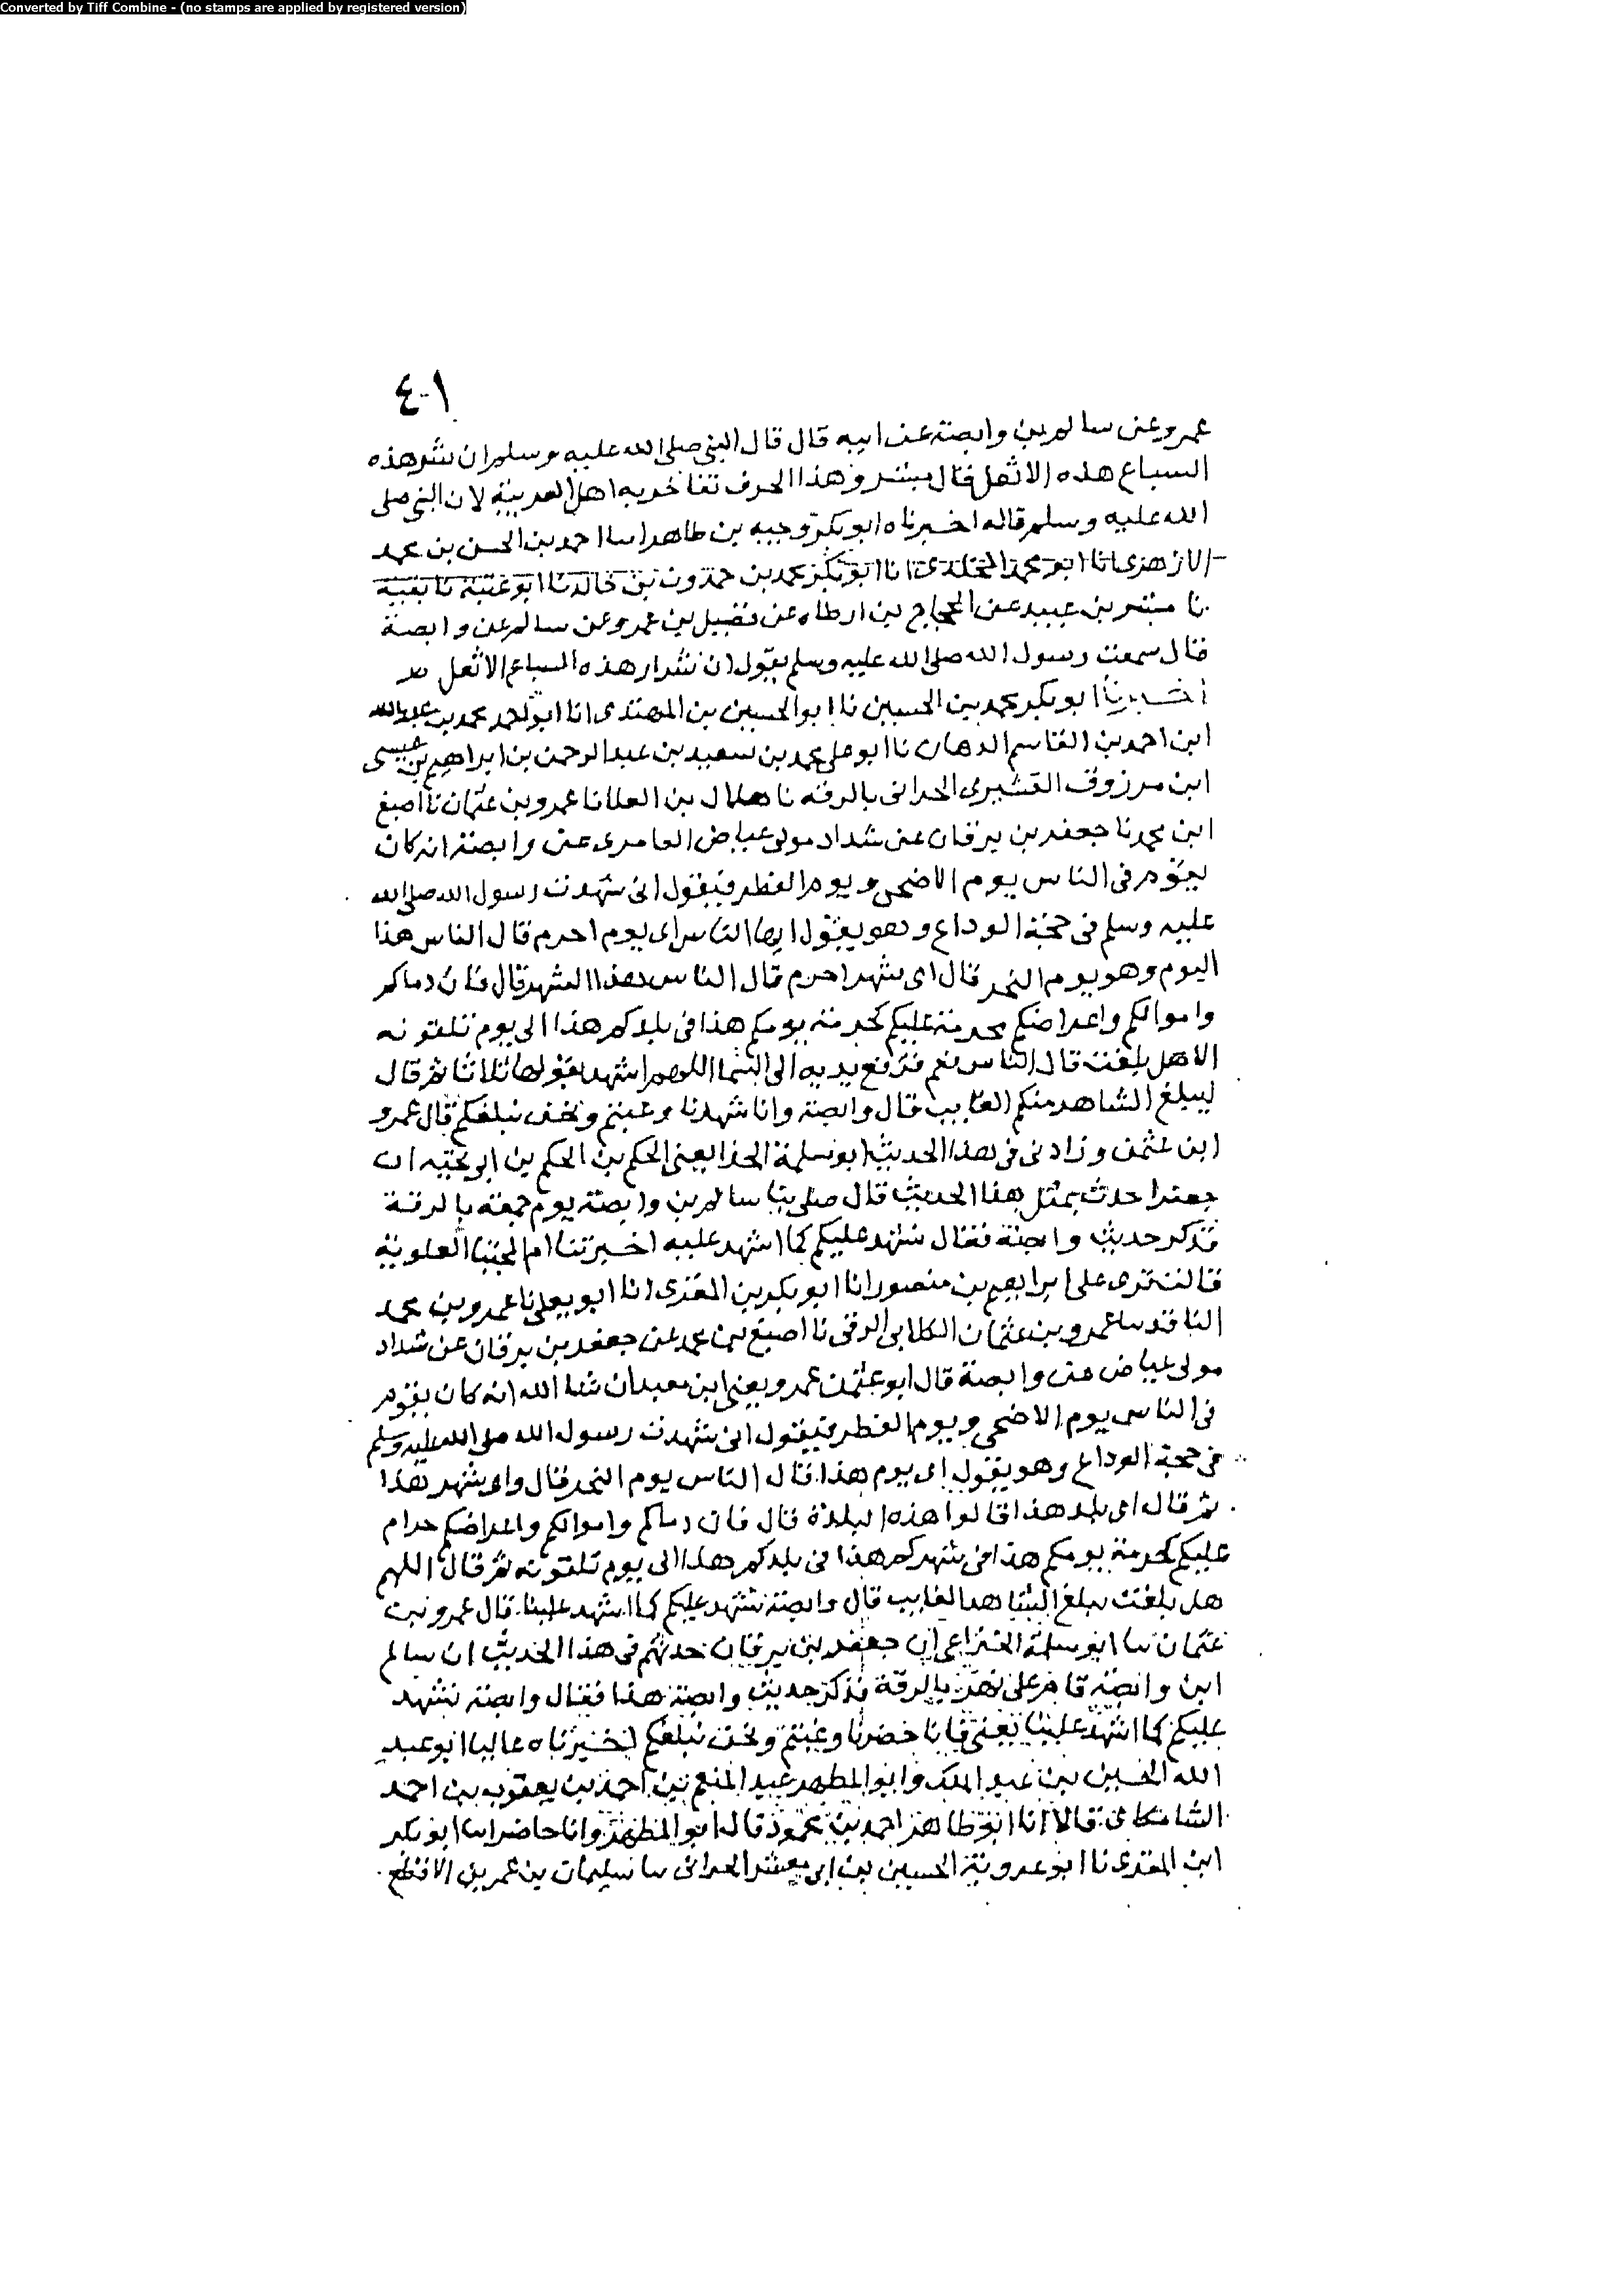 Converted by Tiff Combine - (no stamps are applied by registered version)
٤٠١
عمرو عن سالم بن وابصة عن ابيه قال قال النبي صلى الله عليه وسلم ان شر هذه
السباع هذه الاثعل قال مبشر وهذا الحرف تفاخر به اهل العربية لان النبي صلى
الله عليه وسلم قاله اخبرناه ابو بكر وجيه بن طاهر انا احمد بن الحسن بن محمد
الازهري انا ابو محمد المخلدي انا ابو بكر محمد بن حمدون بن خالد نا ابو عتبة نا بقية
نا مبشر بن عبيد عن الحجاج بن ارطاه عن فضيل بن عمرو عن سالم عن وابصة
قال سمعت رسول الله صلى الله عليه وسلم يقول ان شرار هذه السباع الاثعل
اخبرنا ابو بكر محمد بن الحسين نا ابو الحسين بن المهتدى انا ابو احمد محمد بن عبد الله
ابن احمد بن القاسم الدهان نا ابو على محمد بن سعيد بن عبد الرحمن بن ابراهيم بن عيسى
ابن مرزوق القشيري الحراني بالرقه نا هلال بن العلا نا عمرو بن عثمان نا اصبغ
ابن محمد نا جعفر بن برقان عن شداد مولى عياض العامرى عن وابصة انه كان
يقوم فى الناس يوم الاضحى ويوم الفطر فيقول انى شهدت رسول الله صلى الله
عليه وسلم فى حجة الوداع وهو يقول ايها الناس اى يوم احرم قال الناس هذا
اليوم وهو يوم النحر قال اى شهر احرم قال الناس هذا الشهر قال فان دماكم
واموالكم واعراضكم محرمة عليكم كحرمة يومكم هذا فى بلدكم هذا الى يوم تلقونه
الاهل بلغت قال الناس نعم فرفع يديه الى السما اللهم اشهد يقولها ثلاثا ثم قال
ليبلغ الشاهد منكم الغايب قال وابصة وانا شهدنا وغبتم ونحن نبلغكم قال عمرو
ابن عثمن وزادنى فى هذا الحديث ابو سلمة الحذا يعنى الحكم بن الحكم بن ابو ان
جعفرا حدث بمثل هذا الحديث قال صلى بنا سالم بن وابصة يوم جمعة بالرقة
فذكر حديث وابصة فقال نشهد عليكم كما اشهد عليه اخبرتنا ام المجتبا العلوية
قالت قرى على ابراهيم بن منصور انا ابو بكر بن المقرى انا ابو يعلى نا عمرو بن محمد
الناقد نا عمرو بن عثمان الكلابى الرقى نا اصبغ بن محمد عن جعفر بن برقان عن شداد
مولى عياض عن وابصة قال ابو عثمن عمرو يعنى ابن معبد ان شا الله انه كان يقوم
فى الناس يوم الاضحى ويوم الفطر فيقول انى شهدت رسول الله صلى الله عليه وسلم
فى حجة الوداع وهو يقول اى يوم هذا قال الناس يوم النحر قال واى شهر هذا
ثم قال اى بلد هذا قالوا هذه البلدة قال فان دماكم واموالكم واعراضكم حرام
عليكم كحرمة يومكم هذا فى شهركم هذا فى بلدكم هذا الى يوم تلقونه ثم قال اللهم
هل بلغت يبلغ الشاهد الغايب قال وابصة نشهد عليكم كما اشهد علينا قال عمرو بن
عثمان نا ابو سلمة الخزاعى ان جعفر بن برقان حدثهم فى هذا الحديث ان سالم
ابن وابصة قام على بالرقة فذكر حديث وابصة هذا فقال وابصة نشهد
عليكم كما اشهد علينا يعنى فانا حضرنا وغبتم ونحن نبلغكم اخبرناه عاليا ابو عبد
الله الحسين بن عبد الملك وابو المطهر عبد المنعم بن احمد بن يعقوب بن احمد
الشامكانى قالا انا ابو طاهر احمد بن محمود قال ابو المطهر وانا حاضر انا ابو بكر
ابن المقرى نا ابو عروبة الحسين بن ابى معشر الحرانى نا سليمان بن عمر بن الاقطع